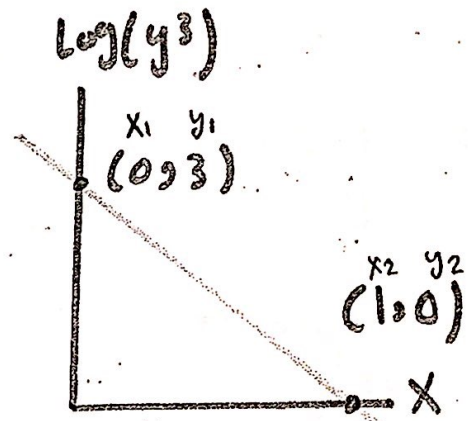 Log(y³)
x₁ y₁
(0,3)
x₂ y₂
(1,0)
X